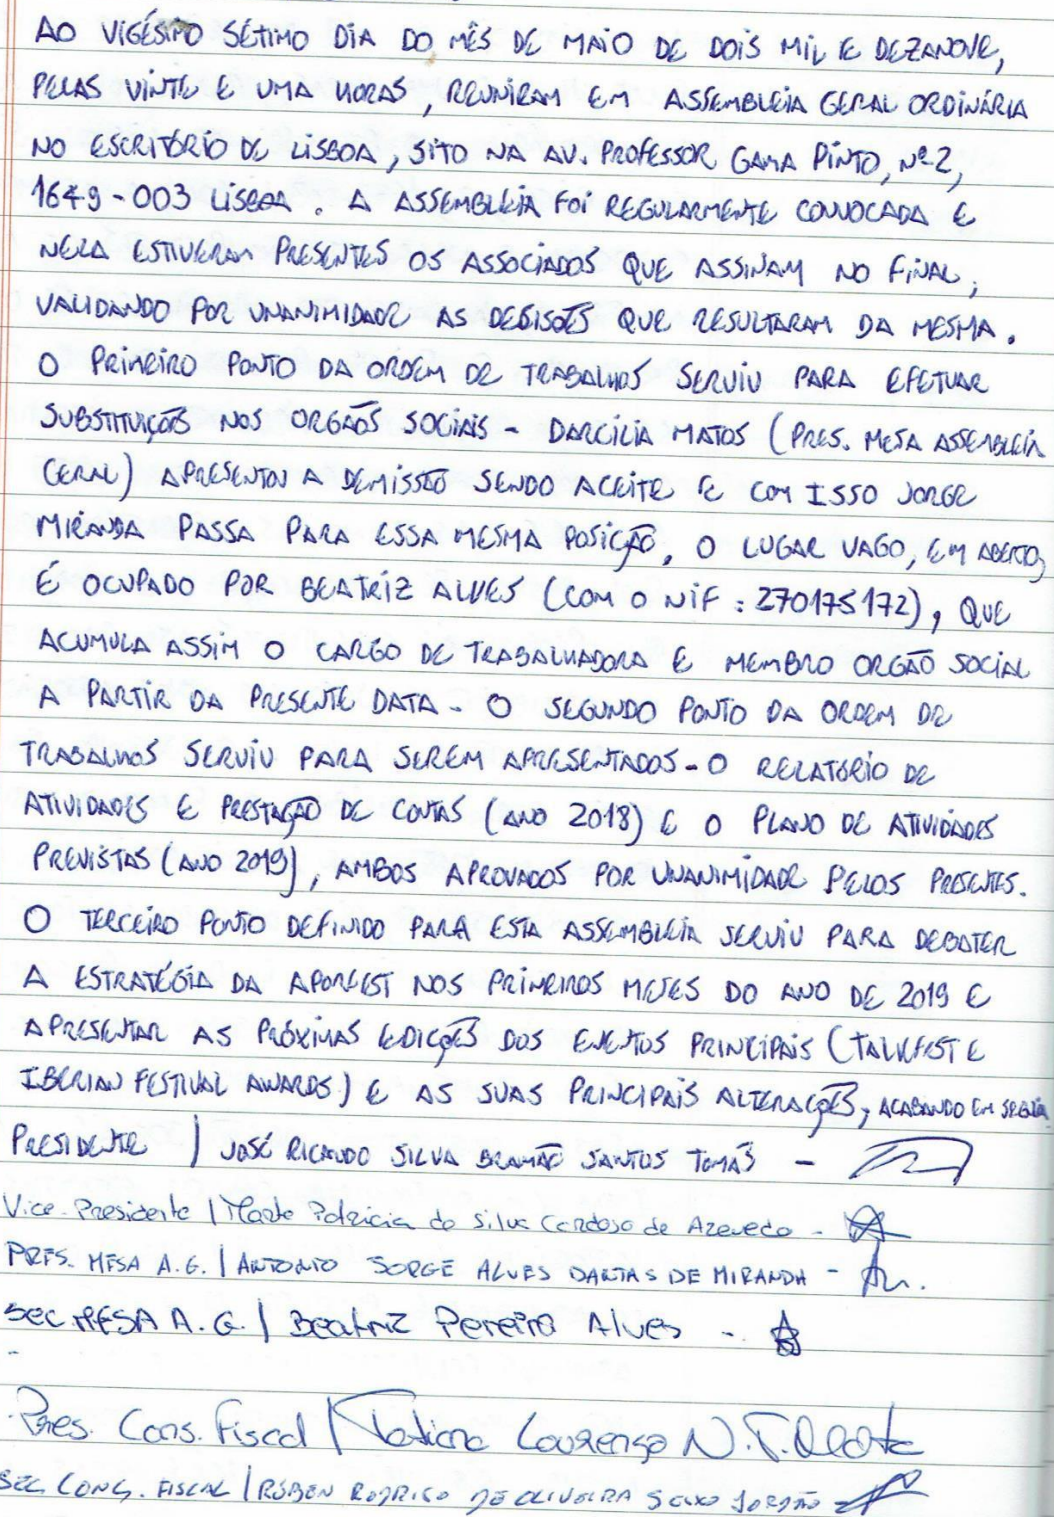 AO VIGÉSIMO SÉTIMO DIA DO MÊS DE MAIO DE DOIS MIL E DEZANOVE,
PELAS VINTE E UMA HORAS, REUNIRAM EM ASSEMBLEIA GERAL ORDINÁRIA
NO ESCRITÓRIO DE LISBOA, SITO NA AV. PROFESSOR GAMA PINTO, Nº2,
1649-003 LISBOA. A ASSEMBLEIA FOI REGULARMENTE CONVOCADA E
NELA ESTIVERAM PRESENTES OS ASSOCIADOS QUE ASSINAM NO FINAL,
VALIDANDO POR UNANIMIDADE AS DECISÕES QUE RESULTARAM DA MESMA.
O PRIMEIRO PONTO DA ORDEM DE TRABALHOS SERVIU PARA EFETUAR
SUBSTITUIÇÕES NOS ORGÃOS SOCIAIS - DARCÍLIA MATOS (PRES. MESA ASSEMBLEIA
GERAL) APRESENTOU A DEMISSÃO SENDO ACEITE E COM ISSO JORGE
MIRANDA PASSA PARA ESSA MESMA POSIÇÃO, O LUGAR VAGO, EM ABERTO,
É OCUPADO POR BEATRIZ ALVES (COM O NIF : 270175172), QUE
ACUMULA ASSIM O CARGO DE TRABALHADORA E MEMBRO ORGÃO SOCIAL
A PARTIR DA PRESENTE DATA - O SEGUNDO PONTO DA ORDEM DE
TRABALHOS SERVIU PARA SEREM APRESENTADOS - O RELATÓRIO DE
ATIVIDADES E PRESTAÇÃO DE CONTAS (ANO 2018) E O PLANO DE ATIVIDADES
PREVISTAS (ANO 2019), AMBOS APROVADOS POR UNANIMIDADE PELOS PRESENTES.
O TERCEIRO PONTO DEFINIDO PARA ESTA ASSEMBLEIA SERVIU PARA DEBATER
A ESTRATÉGIA DA APORFEST NOS PRIMEIROS MESES DO ANO DE 2019 E
APRESENTAR AS PRÓXIMAS EDIÇÕES DOS EVENTOS PRINCIPAIS (TALKFEST E
IBERIAN FESTIVAL AWARDS) E AS SUAS PRINCIPAIS ALTERAÇÕES, ACABANDO EM SEGUIDA
PRESIDENTE | JOSÉ RICARDO SILVA BRAMÃO SANTOS TOMÁS -
Vice-Presidente | Marta Patrícia da Silva Cardoso de Azevedo -
PRES. MESA A.G. | ANTONIO JORGE ALVES DANTAS DE MIRANDA -
SEC MESA A.G. | Beatriz Pereira Alves -
Pres. Cons. Fiscal | Tatiana Lourenço N. T.
SEC CONS. FISCAL | RÚBEN RODRIGO DE OLIVEIRA SEIXO JORDÃO